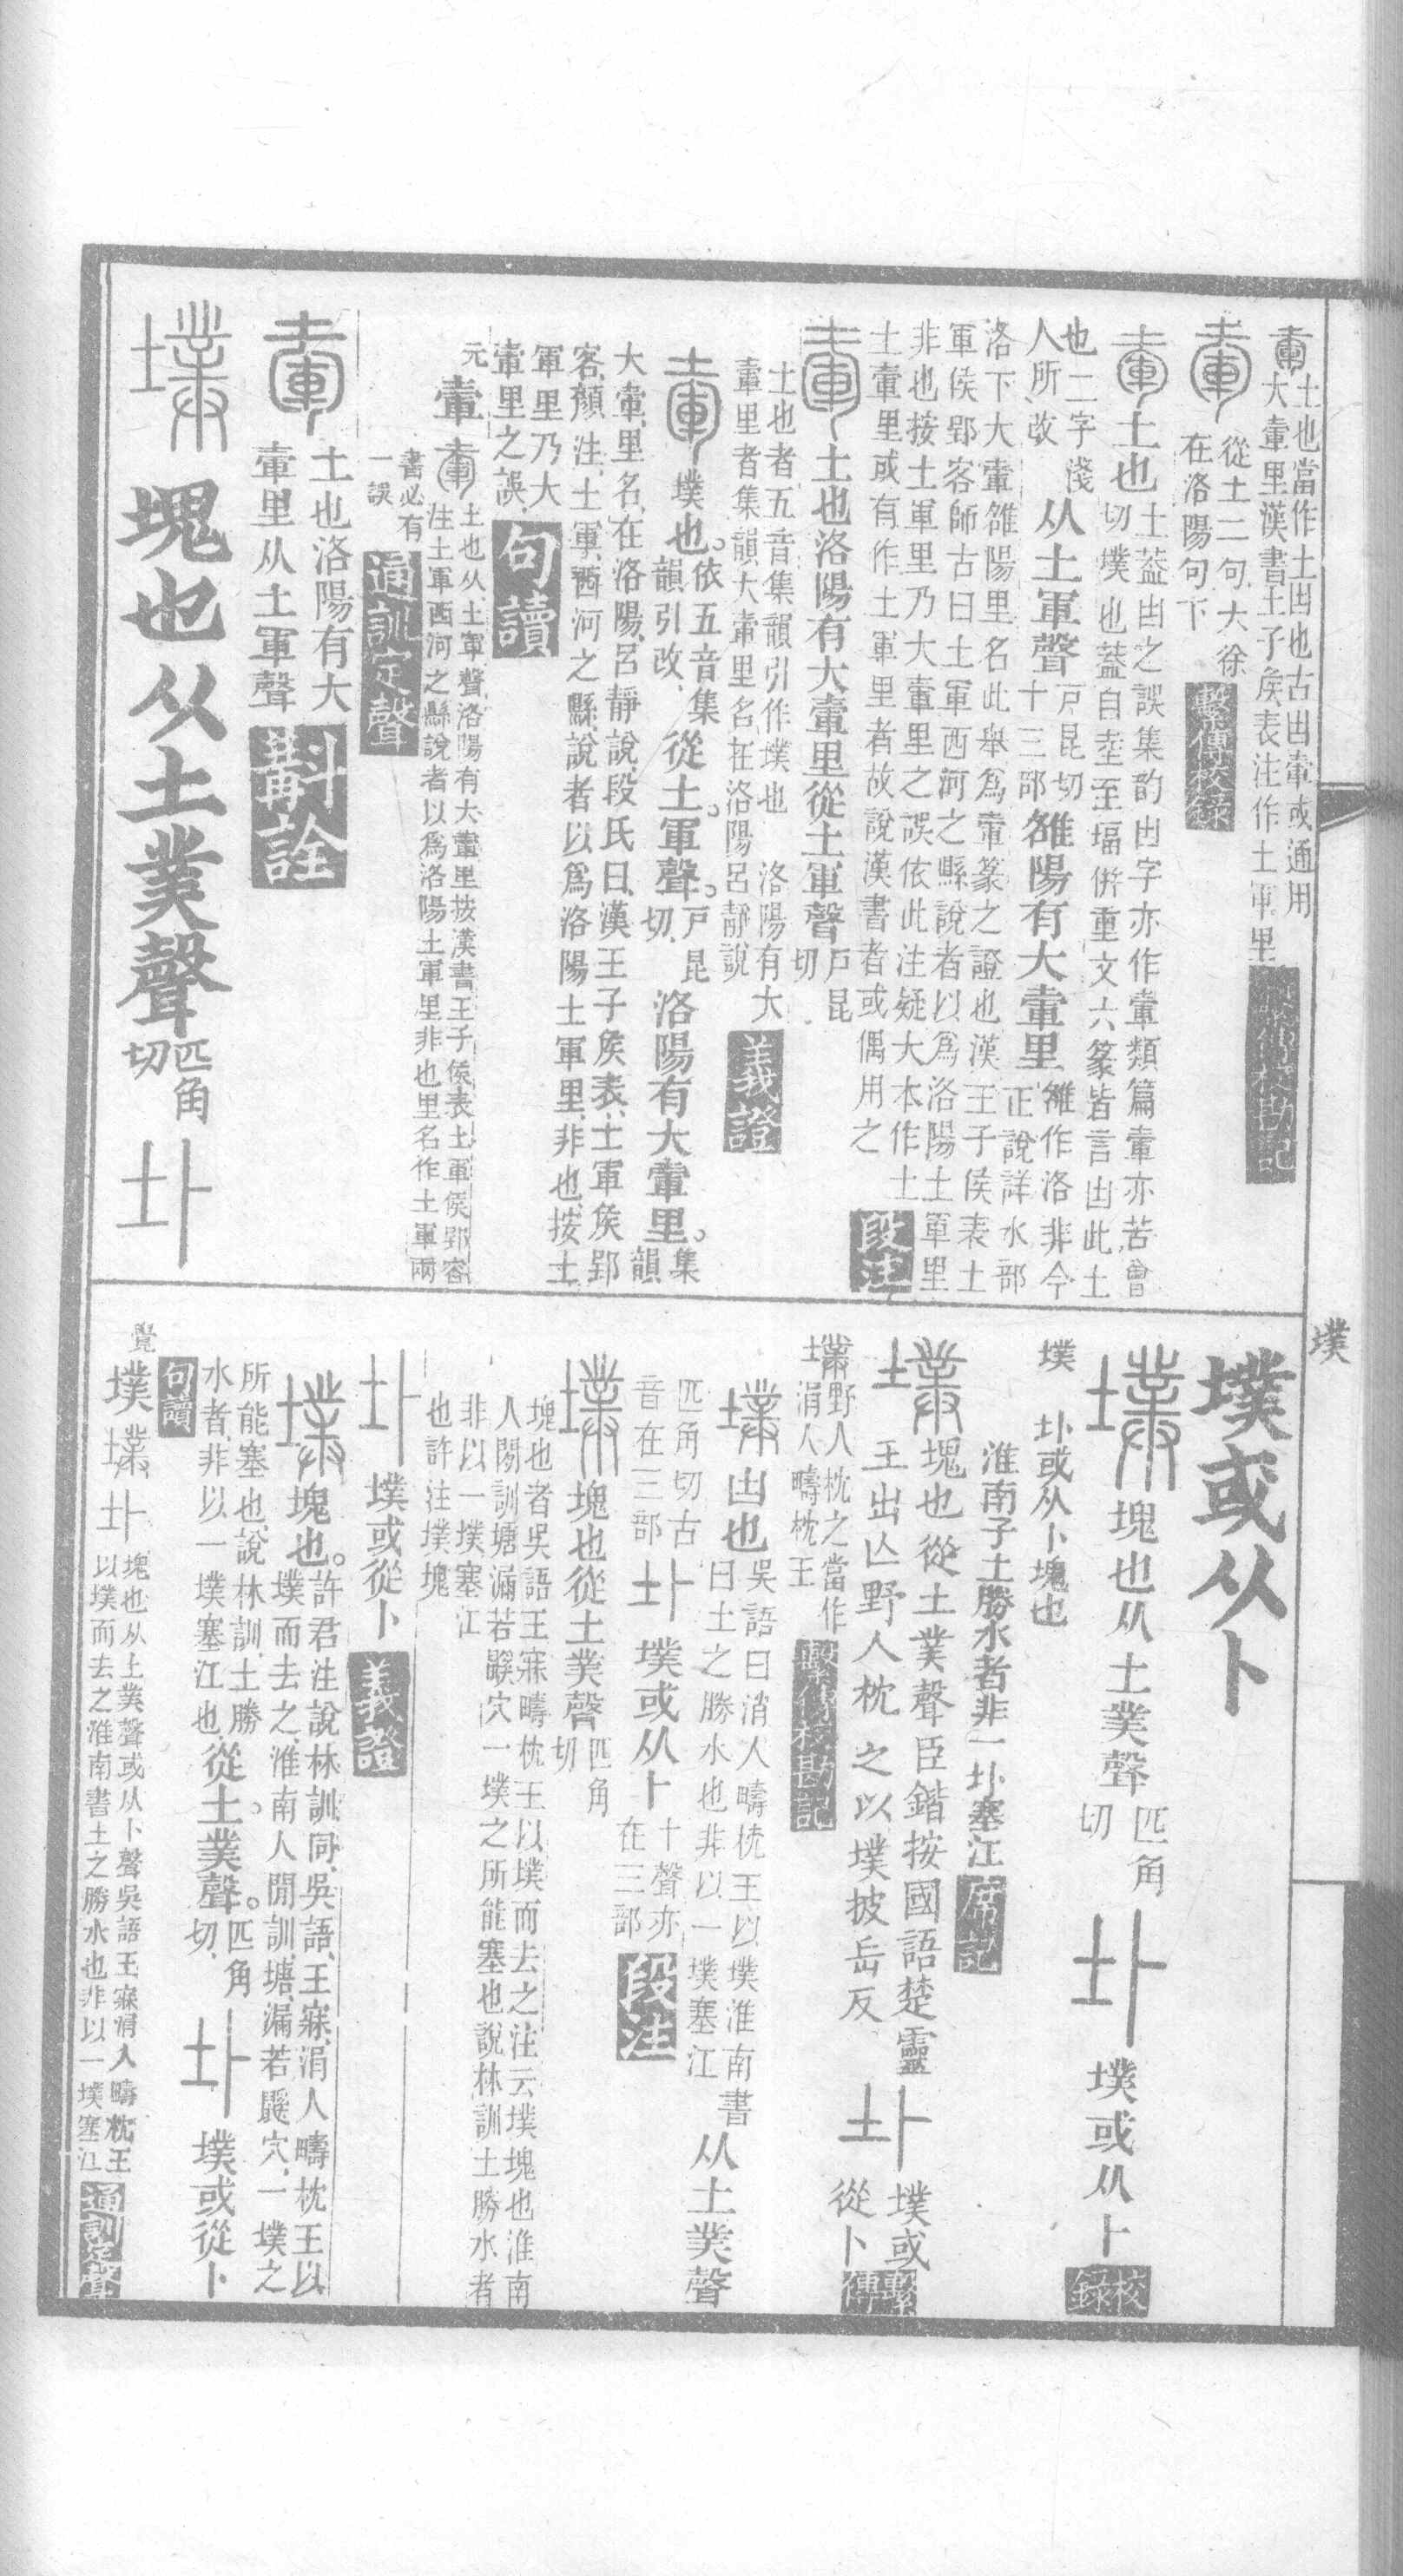 土也當作土凷也古凷𡑞或通用
大𡑞里漢書王子矦表注作土軍里
從土二句大徐
在洛陽句下
繫傳校錄
土也
土葢凷之誤集韵凷字亦作𡑞類篇𡑞亦苦會
切墣也葢自坴至堛倂重文六篆皆言凷此土
也二字淺
人所改
从土軍聲
戸昆切
十三部
雒陽有大𡑞里
雒作洛非今
正說詳水部
洛下大𡑞雒陽里名此舉爲𡑞篆之證也漢王子侯表土
軍侯郢客師古曰土軍西河之縣說者以爲洛陽土軍里
非也按土軍里乃大𡑞里之誤依此注疑大本作土
土𡑞里或有作土軍里者故說漢書者或偶用之
段注
土也洛陽有大𡑞里從土軍聲
戸昆
切
土也者五音集韻引作墣也
洛陽有大
𡑞里者集韻大𡑞里名在洛陽呂靜說
義證
墣也。
依五音集
韻引改、
從土。軍聲。
戸昆
切、
洛陽有大𡑞里。
集
韻
大𡑞、里名、在洛陽、呂靜說、段氏曰、漢王子矦表、土軍矦郢
客、顏注、土軍、西河之縣、說者以爲洛陽土軍里、非也、按土
軍里乃大
𡑞里之誤、
句讀
元
𡑞
土也从土軍聲洛陽有大𡑞里按漢書王子侯表土軍侯郢客
注土軍西河之縣說者以爲洛陽土軍里非也里名作土軍兩
書必有
一誤
通訓定聲
土也洛陽有大
𡑞里从土軍聲
斠詮
塊也从土菐聲
匹角
切
圤
墣
墣或从卜
塊也从土菐聲
匹角
切
圤
墣或从卜
校錄
墣
圤或从卜塊也
淮南子土勝水者非一圤塞江
席記
塊也從土菐聲臣鍇按國語楚靈
王出亾野人枕之以墣披岳反
圤
墣或
從卜
繫傳
野人枕之當作
涓人疇枕王
繫傳校勘記
凷也
吳語曰涓人疇枕王以墣淮南書
曰土之勝水也非以一墣塞江
从土菐聲
匹角切古
音在三部
圤
墣或从卜
卜聲亦
在三部
段注
塊也從土菐聲
匹角
切
塊也者吳語王寐疇枕王以墣而去之注云墣塊也淮南
人閒訓塘漏若鼷穴一墣之所能塞也說林訓土勝水者
非以一墣塞江
也許注墣塊
圤
墣或從卜
義證
塊也。
許君注說林訓同、吳語、王寐、涓人疇枕王以
墣而去之、淮南人閒訓、塘漏若鼷穴、一墣之
所能塞也、說林訓、土勝
水者、非以一墣塞江也、
從土。菐聲。
匹角
切、
圤
墣或從卜
句讀
覺
墣
圤
塊也从土菐聲或从卜聲吳語王寐涓人疇枕王
以墣而去之淮南書土之勝水也非以一墣塞江
通訓定聲
墣